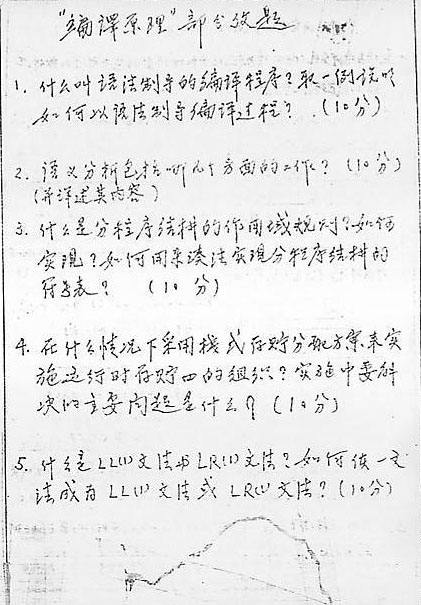 "编译原理"部分考题
1. 什么叫语法制导的编译程序？取一例说明
如何以语法制导编译过程？ (10分)
2. 语义分析包括哪几个方面的工作？ (10分)
(并详述其内容)
3. 什么是分程序结构的作用域规则？如何
实现？如何用杂凑法实现分程序结构的
符号表？ (10分)
4. 在什么情况下采用栈式存贮分配方案来实
施运行时存贮 的组织？实施中要解
决的主要问题是什么？ (10分)
5. 什么是LL(1)文法与LR(1)文法？如何使一文
法成为LL(1)文法或LR(1)文法？ (10分)